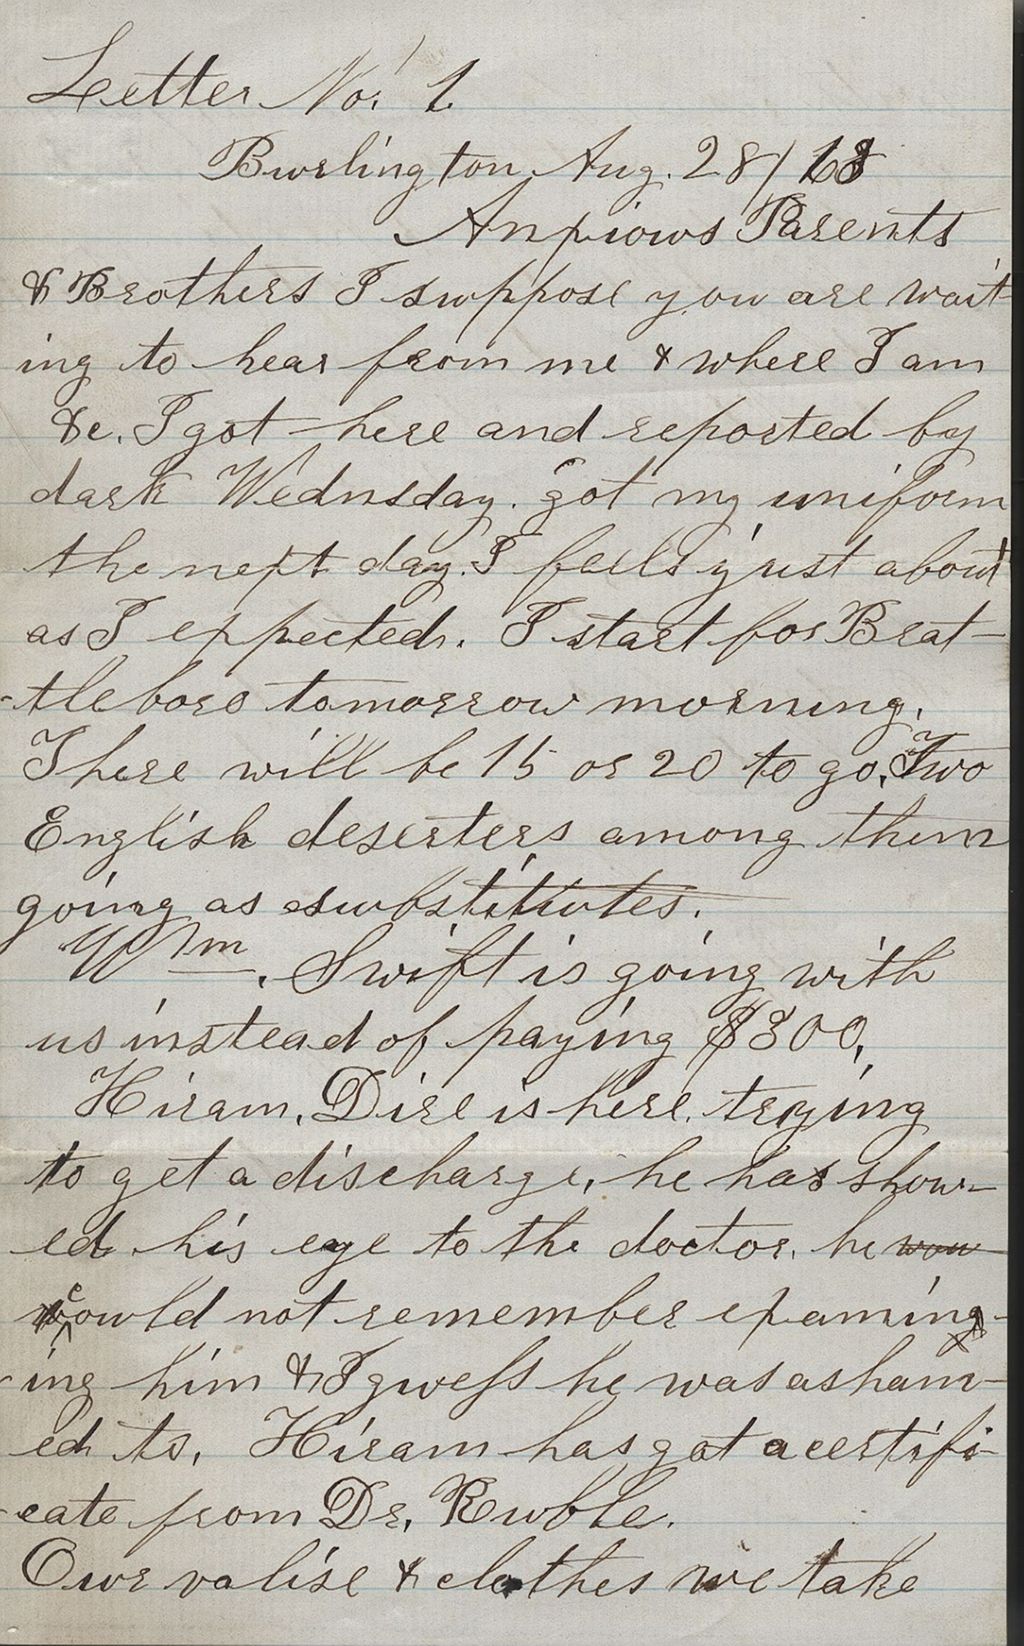 Letter No. 1
Burlington Aug. 28/63
Anxious Parents
& Brothers I suppose you are wait
ing to hear from me & where I am
&c. I got here and reported by
dark Wednsday. got my uniform
the next day. I feels just about
as I expected. I start for Brat-
-tleboro tomorrow morning.
There will be 15 or 20 to go, Two
English deserters among them
going as substitutes.
Wm. Swift is going with
us instead of paying $300,
Hiram, Dire is here trying
to get a discharge, he has show-
ed his eye to the doctor, he wou
could not remember examing-
-ing him & I guess he was asham-
ed to. Hiram has got a certifi-
-cate from Dr. Ruble.
Our valise & clothes we take